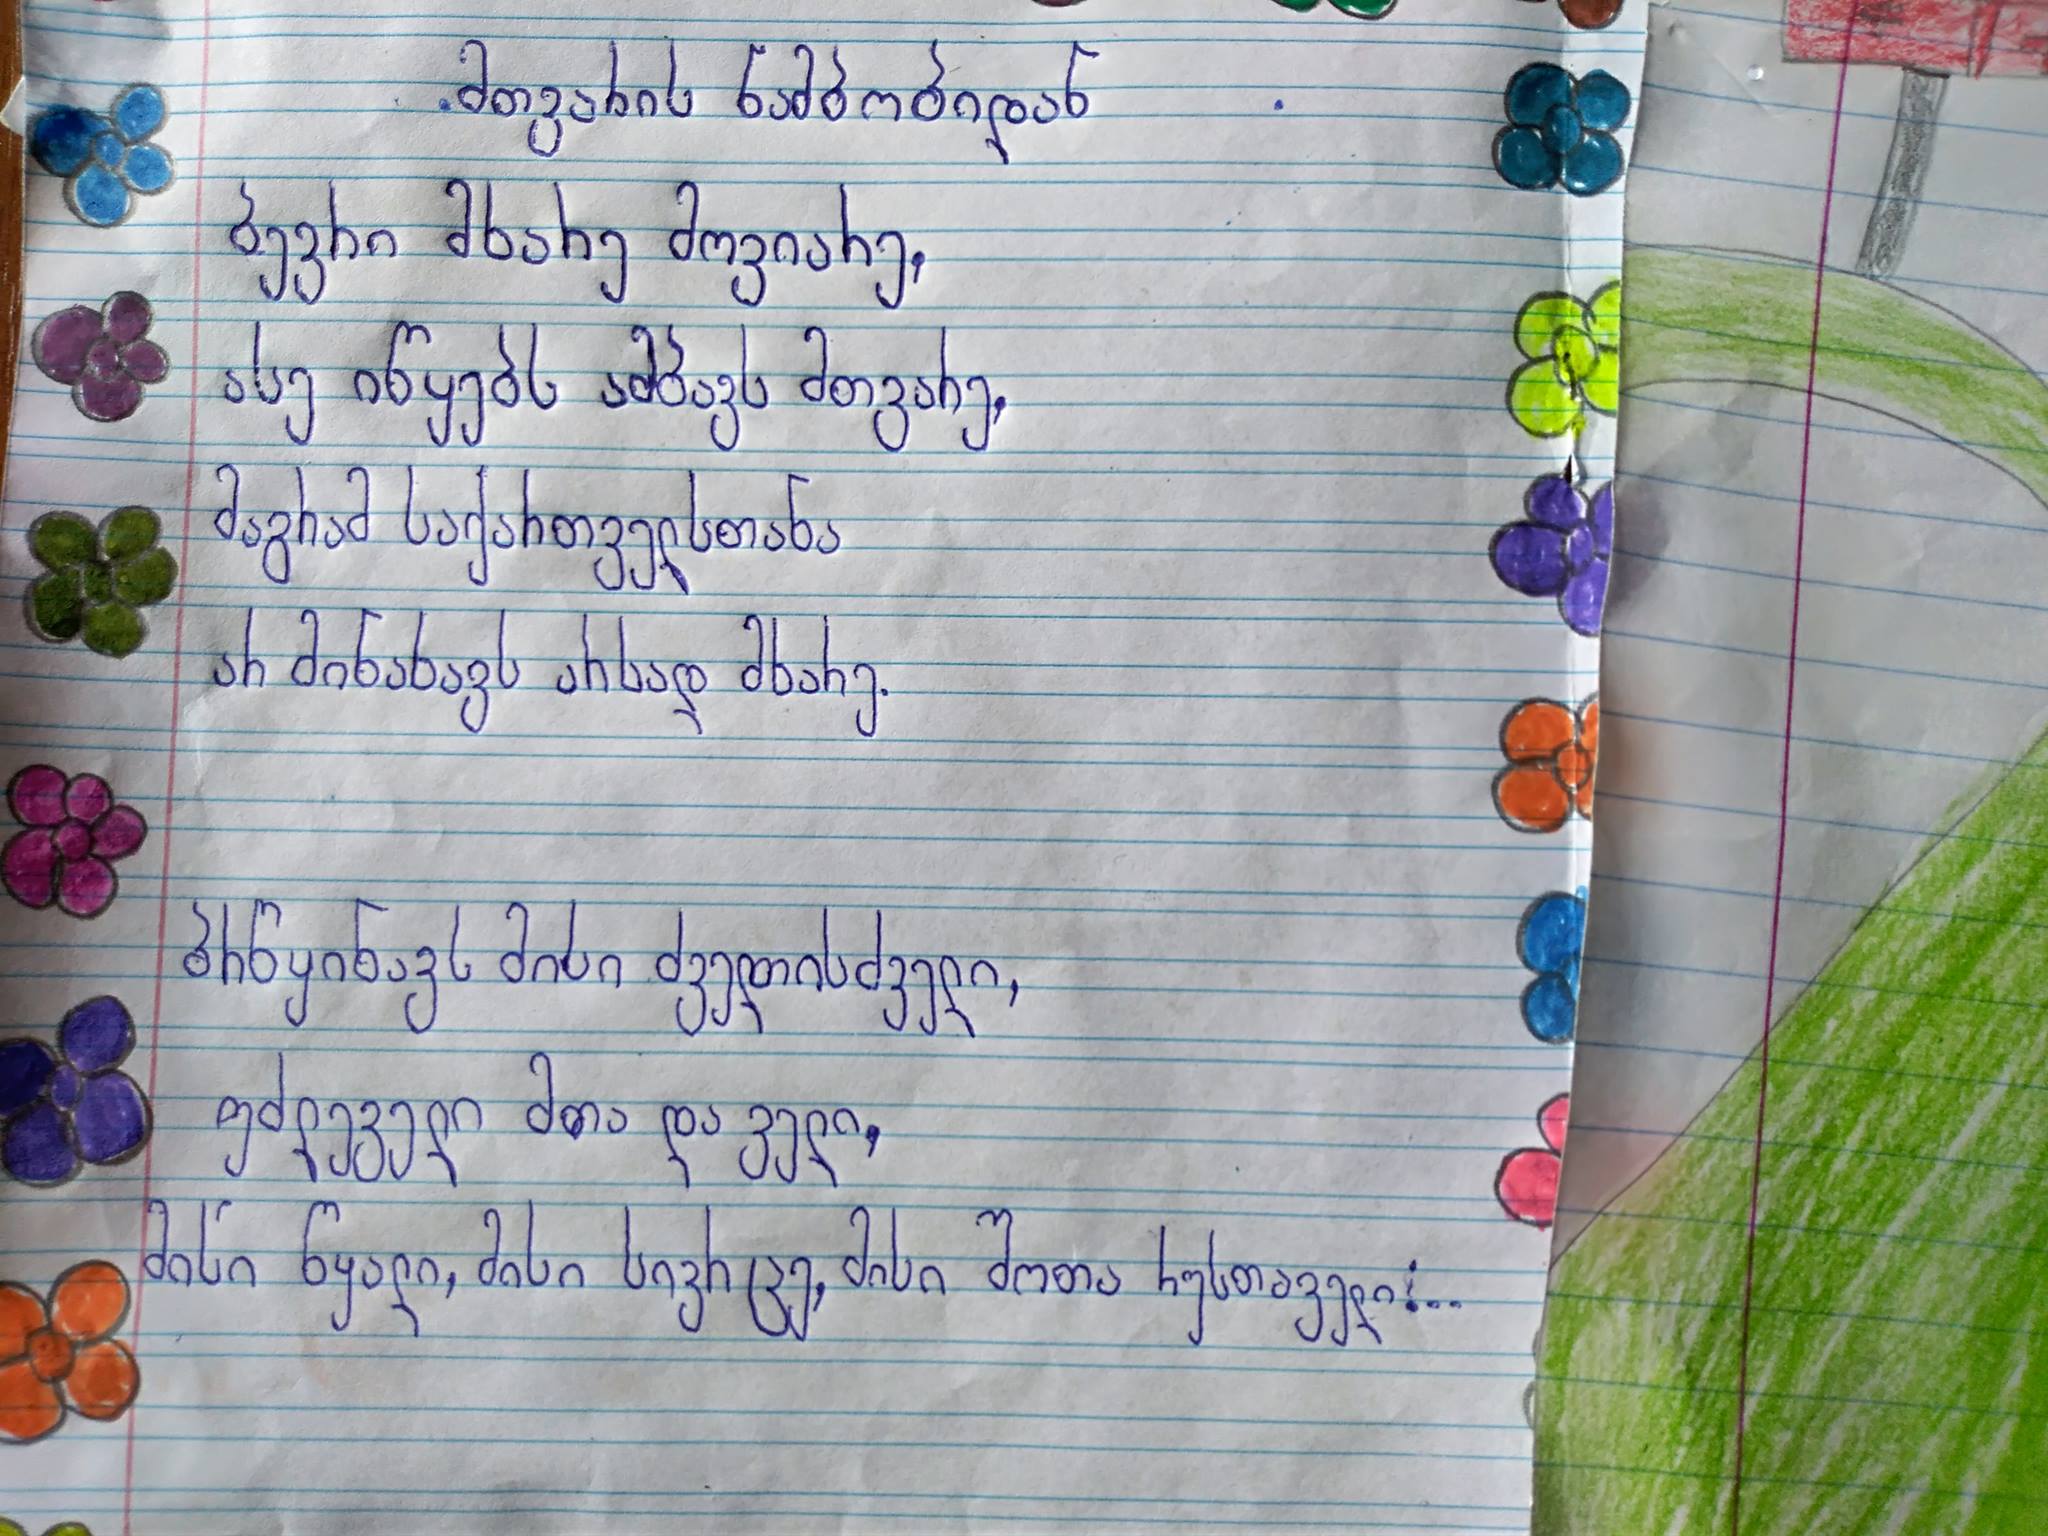 მთვარის ნამბობიდან
ბევრი მხარე მოვიარე,
ასე იწყებს ამბავს მთვარე,
მაგრამ საქართველსთანა
არ მინახავს არსად მხარე.
ბრწყინავს მისი ძველთისძველი,
უძლეველი მთა და ველი,
მისი წყალი, მისი სივრცე, მისი შოთა რუსთაველი!...